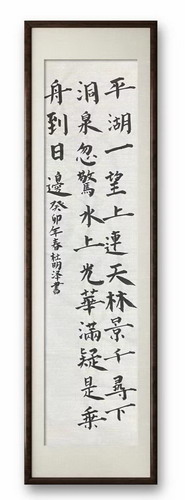 平湖一望上連天林景千尋下
洞泉忽驚水上光華滿疑是乗
舟到日邊癸卯年春杜明洋書